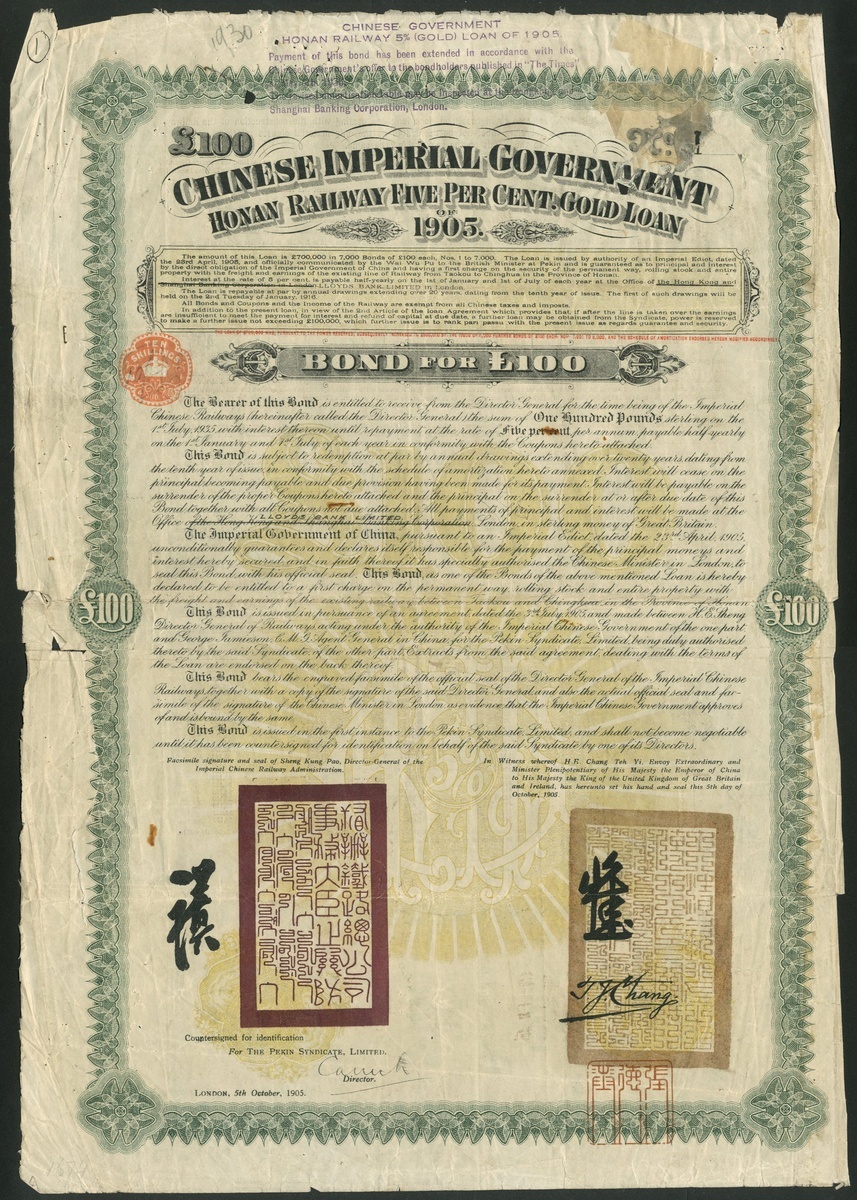 1
1930
CHINESE GOVERNMENT
HONAN RAILWAY 5% (GOLD) LOAN OF 1905.
Payment of this bond has been extended in accordance with the
Government's offer to the bondholders published in "The Times"
may be inspected at the
Shanghai Banking Corporation, London.
£100
CHINESE IMPERIAL GOVERNMENT
HONAN RAILWAY FIVE PER CENT. GOLD LOAN
OF
1905.
The amount of this Loan is £700,000 in 7,000 Bonds of £100 each, Nos. 1 to 7,000. The Loan is issued by authority of an Imperial Edict, dated
the 23rd April, 1905, and officially communicated by the Wai Wu Pu to the British Minister at Pekin and is guaranteed as to principal and interest
by the direct obligation of the Imperial Government of China and having a first charge on the security of the permanent way, rolling stock and entire
property with the freight and earnings of the existing line of Railway from Taokou to Chinghua in the Province of Honan.
Interest of 5 per cent. is payable half-yearly on the 1st of January and 1st of July of each year at the Office of the Hong Kong and
Shanghai Banking Corporation in London LLOYDS BANK LIMITED in London.
The Loan is repayable at par by annual drawings extending over 20 years, dating from the tenth year of issue. The first of such drawings will be
held on the 2nd Tuesday of January, 1916.
All Bonds and Coupons and the Income of the Railway are exempt from all Chinese taxes and imposts.
In addition to the present loan, in view of the 2nd Article of the Loan Agreement which provides that, if after the line is taken over the earnings
are insufficient to meet the payment for interest and refund of capital at due date, a further loan may be obtained from the Syndicate, power is reserved
to make a further issue not exceeding £100,000, which further issue is to rank pari passu with the present issue as regards guarantee and security.
AND THE SCHEDULE OF AMORTIZATION ENDORSED HEREON MODIFIED ACCORDINGLY
TEN
SHILLINGS
BOND FOR £100
The Bearer of this Bond is entitled to receive from the Director General for the time being of the Imperial
Chinese Railways (hereinafter called the Director General) the sum of One Hundred Pounds sterling on the
1st July, 1935, with interest thereon until repayment at the rate of Five per cent, per annum, payable half yearly
on the 1st January and 1st July of each year in conformity with the Coupons hereto attached.
This Bond is subject to redemption at par by annual drawings extending over twenty years, dating from
the tenth year of issue, in conformity with the schedule of amortization hereto annexed. Interest will cease on the
principal becoming payable and due provision having been made for its payment. Interest will be payable on the
surrender of the proper Coupons hereto attached and the principal on the surrender at or after due date of this
Bond together with all Coupons not due attached. All payments of principal and interest will be made at the
LLOYDS BANK LIMITED
Office of the Hong Kong and Shanghai Banking Corporation London, in sterling money of Great Britain.
The Imperial Government of China, pursuant to an Imperial Edict, dated the 23rd April, 1905,
unconditionally guarantees and declares itself responsible for the payment of the principal moneys and
interest hereby secured, and in faith thereof it has specially authorised the Chinese Minister in London, to
seal this Bond, with his official seal. This Bond, as one of the Bonds of the above mentioned Loan is hereby
declared to be entitled to a first charge on the permanent way, rolling stock and entire property with
the freight and earnings of the existing railway between Taokou and Chinghua, in the Province of Honan
£100
£100
This Bond is issued in pursuance of an agreement dated the 3rd July, 1905, and made between H.E. Sheng
Director General of Railways, acting under the authority of the Imperial Chinese Government of the one part
and George Jamieson C.M.G. Agent General in China for the Pekin Syndicate, Limited, being duly authorised
thereto by the said Syndicate of the other part. Extracts from the said agreement, dealing with the terms of
the Loan are endorsed on the back thereof.
This Bond bears the engraved facsimile of the official seal of the Director General of the Imperial Chinese
Railways, together with a copy of the signature of the said Director General and also the actual official seal and fac-
simile of the signature of the Chinese Minister in London as evidence that the Imperial Chinese Government approves
of and is bound by the same.
This Bond is issued in the first instance to the Pekin Syndicate Limited, and shall not become negotiable
until it has been countersigned for identification on behalf of the said Syndicate by one of its Directors.
Facsimile signature and seal of Sheng Kung Pao, Director-General of the
Imperial Chinese Railway Administration.
In Witness whereof H.E. Chang Teh Yi, Envoy Extraordinary and
Minister Plenipotentiary of His Majesty the Emperor of China
to His Majesty the King of the United Kingdom of Great Britain
and Ireland, has hereunto set his hand and seal this 5th day of
October, 1905.
T. J. Chang.
Countersigned for identification
For THE PEKIN SYNDICATE, LIMITED.
Director.
LONDON, 5th October, 1905.
張德彝